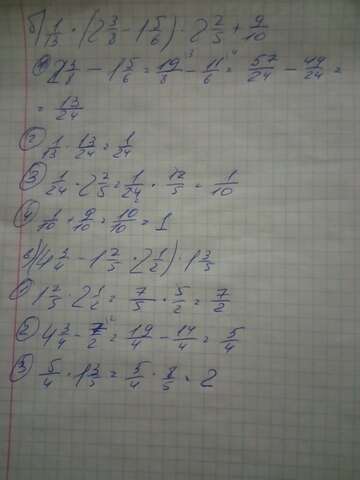 б) 1/13 · (2 3/8 - 1 5/6) · 2 2/5 + 9/10
① 2 3/8 - 1 5/6 = 19/8 - 11/6 = 57/24 - 44/24 =
= 13/24
② 1/13 · 13/24 = 1/24
③ 1/24 · 2 2/5 = 1/24 · 12/5 = 1/10
④ 1/10 + 9/10 = 10/10 = 1
в) (4 3/4 - 1 2/5 · 2 1/2) · 1 3/5
① 1 2/5 · 2 1/2 = 7/5 · 5/2 = 7/2
② 4 3/4 - 7/2 = 19/4 - 14/4 = 5/4
③ 5/4 · 1 3/5 = 5/4 · 8/5 = 2